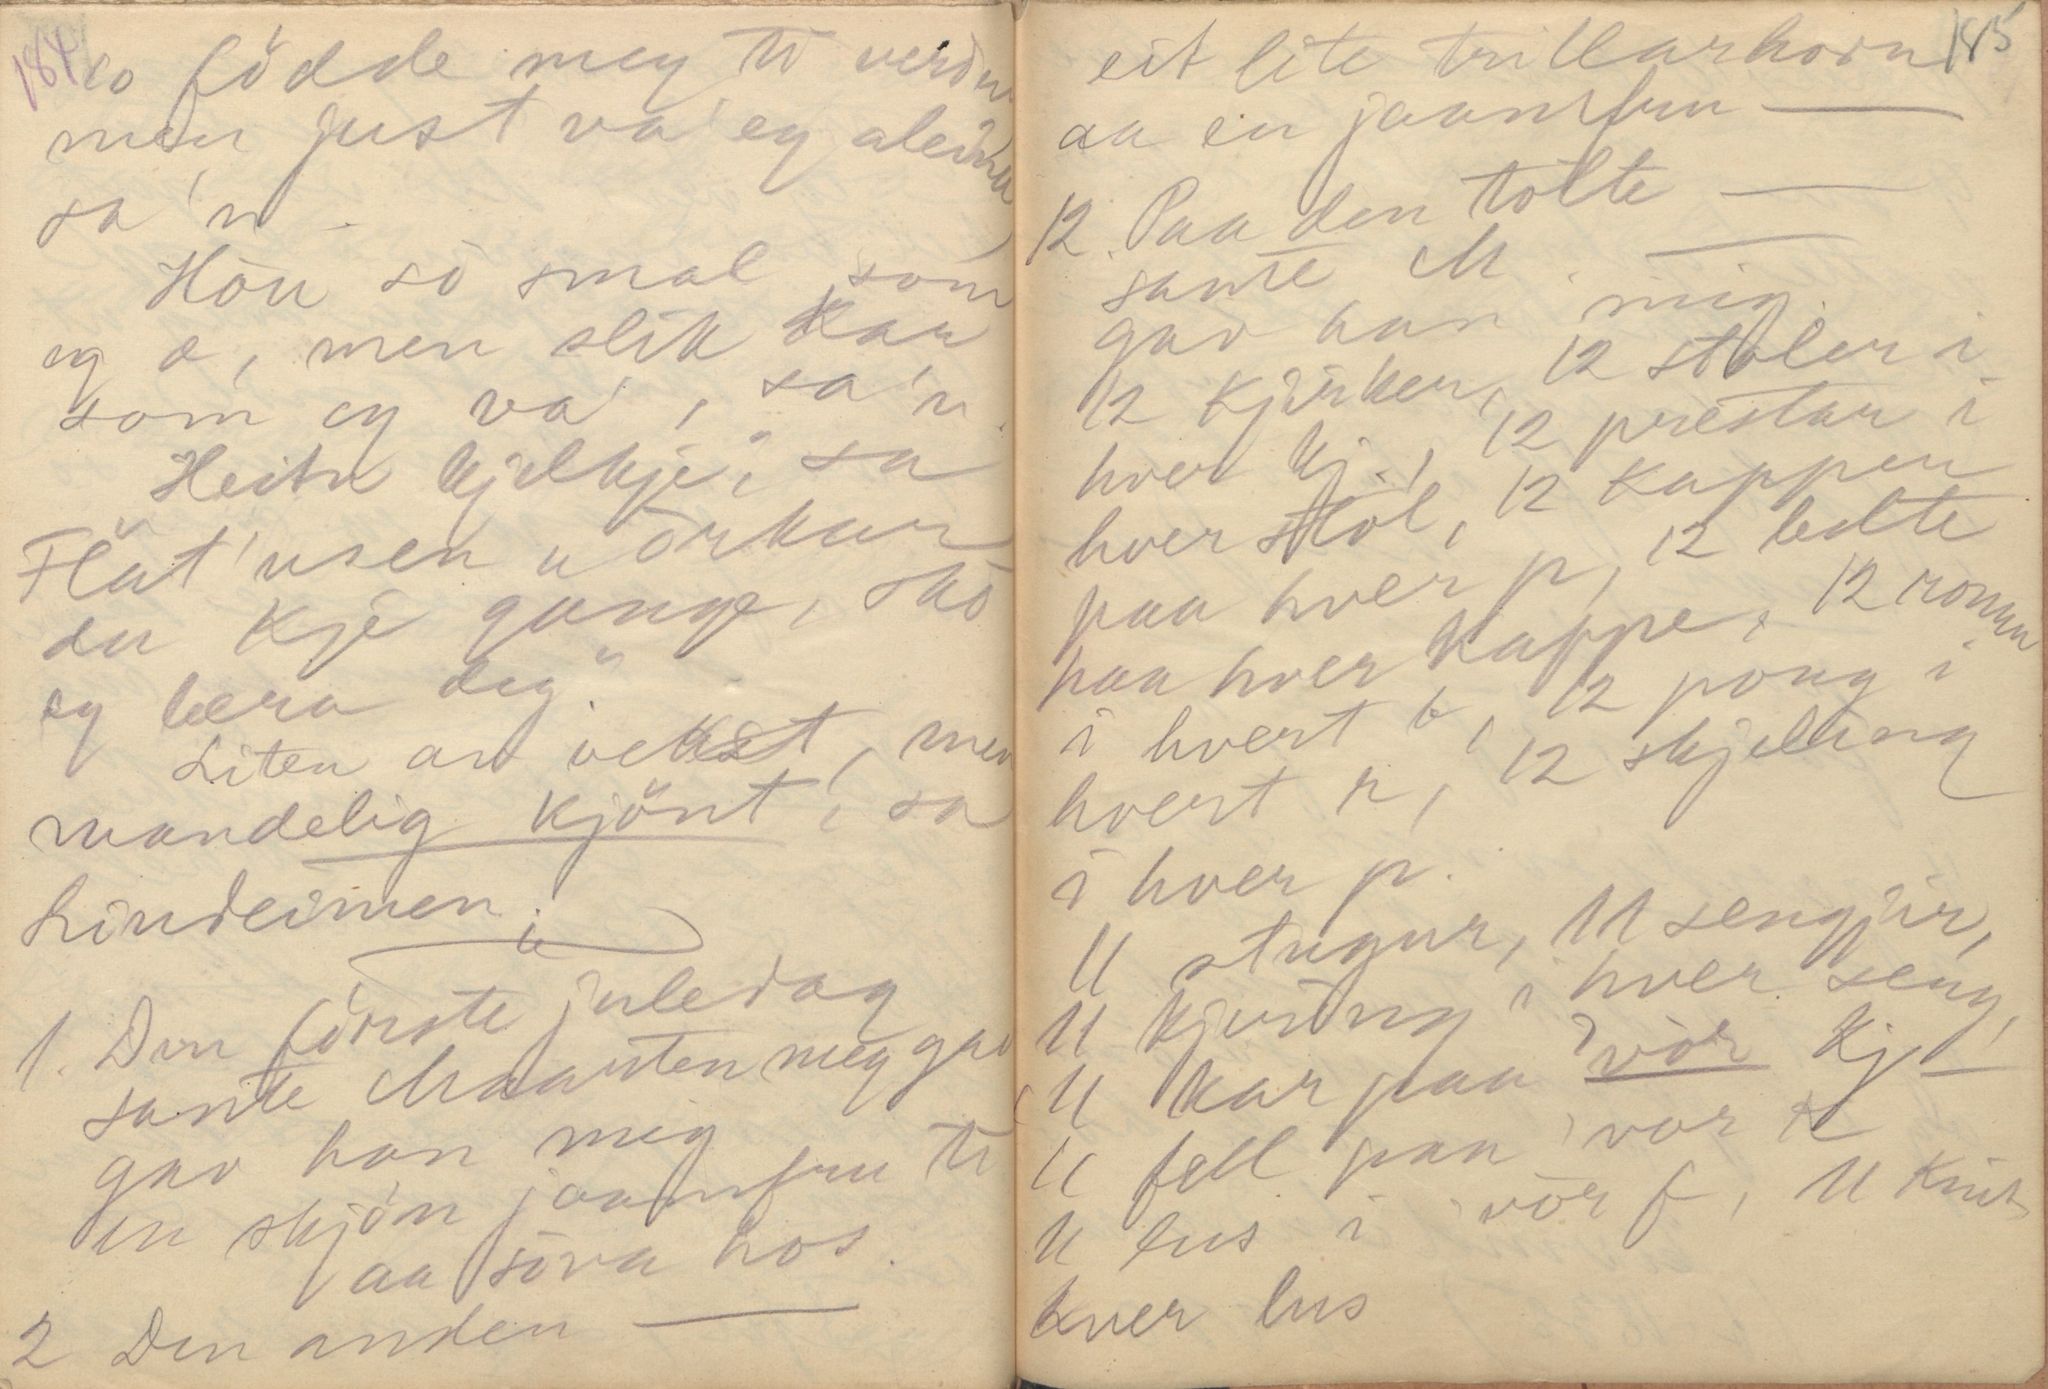 184
lo födde meg ti verdn
men just va' eg aleina
sa'n.
Hôu sô smal som
eg æ, men slik kar
som eg va', sa'n.
Heitn kjelkje", sa
Flat'usen u orkar
du kje gange, skô
eg bera deg".
Liten av vekst, men
mandelig kjönt", sa
Lindeimen.
1. Den förste juledag
sante Maarten meg gav
gav han mig
en skjön jaamfru ti
aa söva hos.
2 Den anden ———
185
eit lite trillarhorn
aa en jaamfru ———
12. Paa den tolte ———
sante M. ———
gav han mig.
12 kjörker, 12 stoler i
hver kj., 12 prestar i
hver stol, 12 kappen
paa hver p, 12 belte
paa hver kappe, 12 romm
i hvert b, 12 pong i
hvert r, 12 skjelling
i hver p.
11 stugur, 11 sengjir,
11 kjering i hver seng,
11 kar paa vör kj —
11 fell paa vor k
11 lus i vör f, 11 knit
hver lus